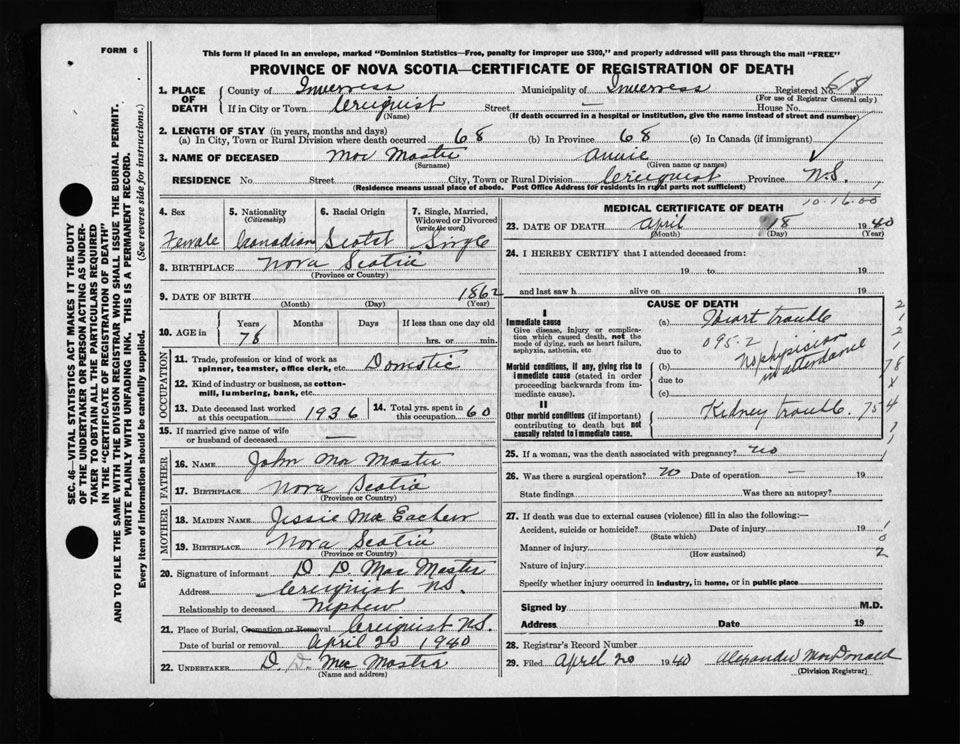 FORM 6
This form if placed in an envelope, marked "Dominion Statistics—Free, penalty for improper use $300," and properly addressed will pass through the mail "FREE"
PROVINCE OF NOVA SCOTIA—CERTIFICATE OF REGISTRATION OF DEATH
1. PLACE OF DEATH County of Inverness Municipality of Inverness Registered No. 618
(For use of Registrar General only)
If in City or Town Creiquist Street — House No.
(Name) (If death occurred in a hospital or institution, give the name instead of street and number)
2. LENGTH OF STAY (in years, months and days)
(a) In City, Town or Rural Division where death occurred 68 (b) In Province 68 (c) In Canada (if immigrant)
3. NAME OF DECEASED Mac Master Annie
(Surname) (Given name or names)
RESIDENCE No. Street City, Town or Rural Division Creiquist Province N.S.
(Residence means usual place of abode. Post Office Address for residents in rural parts not sufficient)
4. Sex 5. Nationality (Citizenship) 6. Racial Origin 7. Single, Married, Widowed or Divorced (write the word)
Female Canadian Scotch Single
8. BIRTHPLACE Nova Scotia
(Province or Country)
9. DATE OF BIRTH 1862
(Month) (Day) (Year)
10. AGE in Years Months Days If less than one day old
78 hrs. or min.
OCCUPATION
11. Trade, profession or kind of work as spinner, teamster, office clerk, etc. Domestic
12. Kind of industry or business, as cotton-mill, lumbering, bank, etc.
13. Date deceased last worked at this occupation 1936 14. Total yrs. spent in this occupation 60
15. If married give name of wife or husband of deceased —
FATHER
16. NAME John Mac Master
17. BIRTHPLACE Nova Scotia
(Province or Country)
MOTHER
18. MAIDEN NAME Jessie Mac Eachern
19. BIRTHPLACE Nova Scotia
(Province or Country)
20. Signature of informant D. D. Mac Master
Address Creiquist N.S.
Relationship to deceased Nephew
21. Place of Burial, Cremation or Removal Creiquist N.S.
Date of burial or removal April 20 1940
22. UNDERTAKER D. D. Mac Master
(Name and address)
10-16-00
MEDICAL CERTIFICATE OF DEATH
23. DATE OF DEATH April 18 1940
(Month) (Day) (Year)
24. I HEREBY CERTIFY that I attended deceased from:
19 to 19
and last saw h alive on 19
CAUSE OF DEATH
I
Immediate cause (a) Heart trouble
Give disease, injury or complication which caused death, not the mode of dying, such as heart failure, asphyxia, asthenia, etc.
095.2
due to
Morbid conditions, if any, giving rise to immediate cause (stated in order proceeding backwards from immediate cause).
(b) No physician in attendance
due to
(c)
II
Other morbid conditions (if important) contributing to death but not causally related to immediate cause.
Kidney trouble.
25. If a woman, was the death associated with pregnancy? no
26. Was there a surgical operation? no Date of operation —
State findings Was there an autopsy?
27. If death was due to external causes (violence) fill in also the following:—
Accident, suicide or homicide? Date of injury 19
(State which)
Manner of injury
(How sustained)
Nature of injury
Specify whether injury occurred in industry, in home, or in public place
Signed by M.D.
Address Date 19
28. Registrar's Record Number
29. Filed April 20 1940 Alexander MacDonald
(Division Registrar)
SEC. 46—VITAL STATISTICS ACT MAKES IT THE DUTY
OF THE UNDERTAKER OR PERSON ACTING AS UNDER-
TAKER TO OBTAIN ALL THE PARTICULARS REQUIRED
IN THE "CERTIFICATE OF REGISTRATION OF DEATH"
AND TO FILE THE SAME WITH THE DIVISION REGISTRAR WHO SHALL ISSUE THE BURIAL PERMIT.
WRITE PLAINLY WITH UNFADING INK. THIS IS A PERMANENT RECORD.
Every item of information should be carefully supplied. (See reverse side for instructions.)